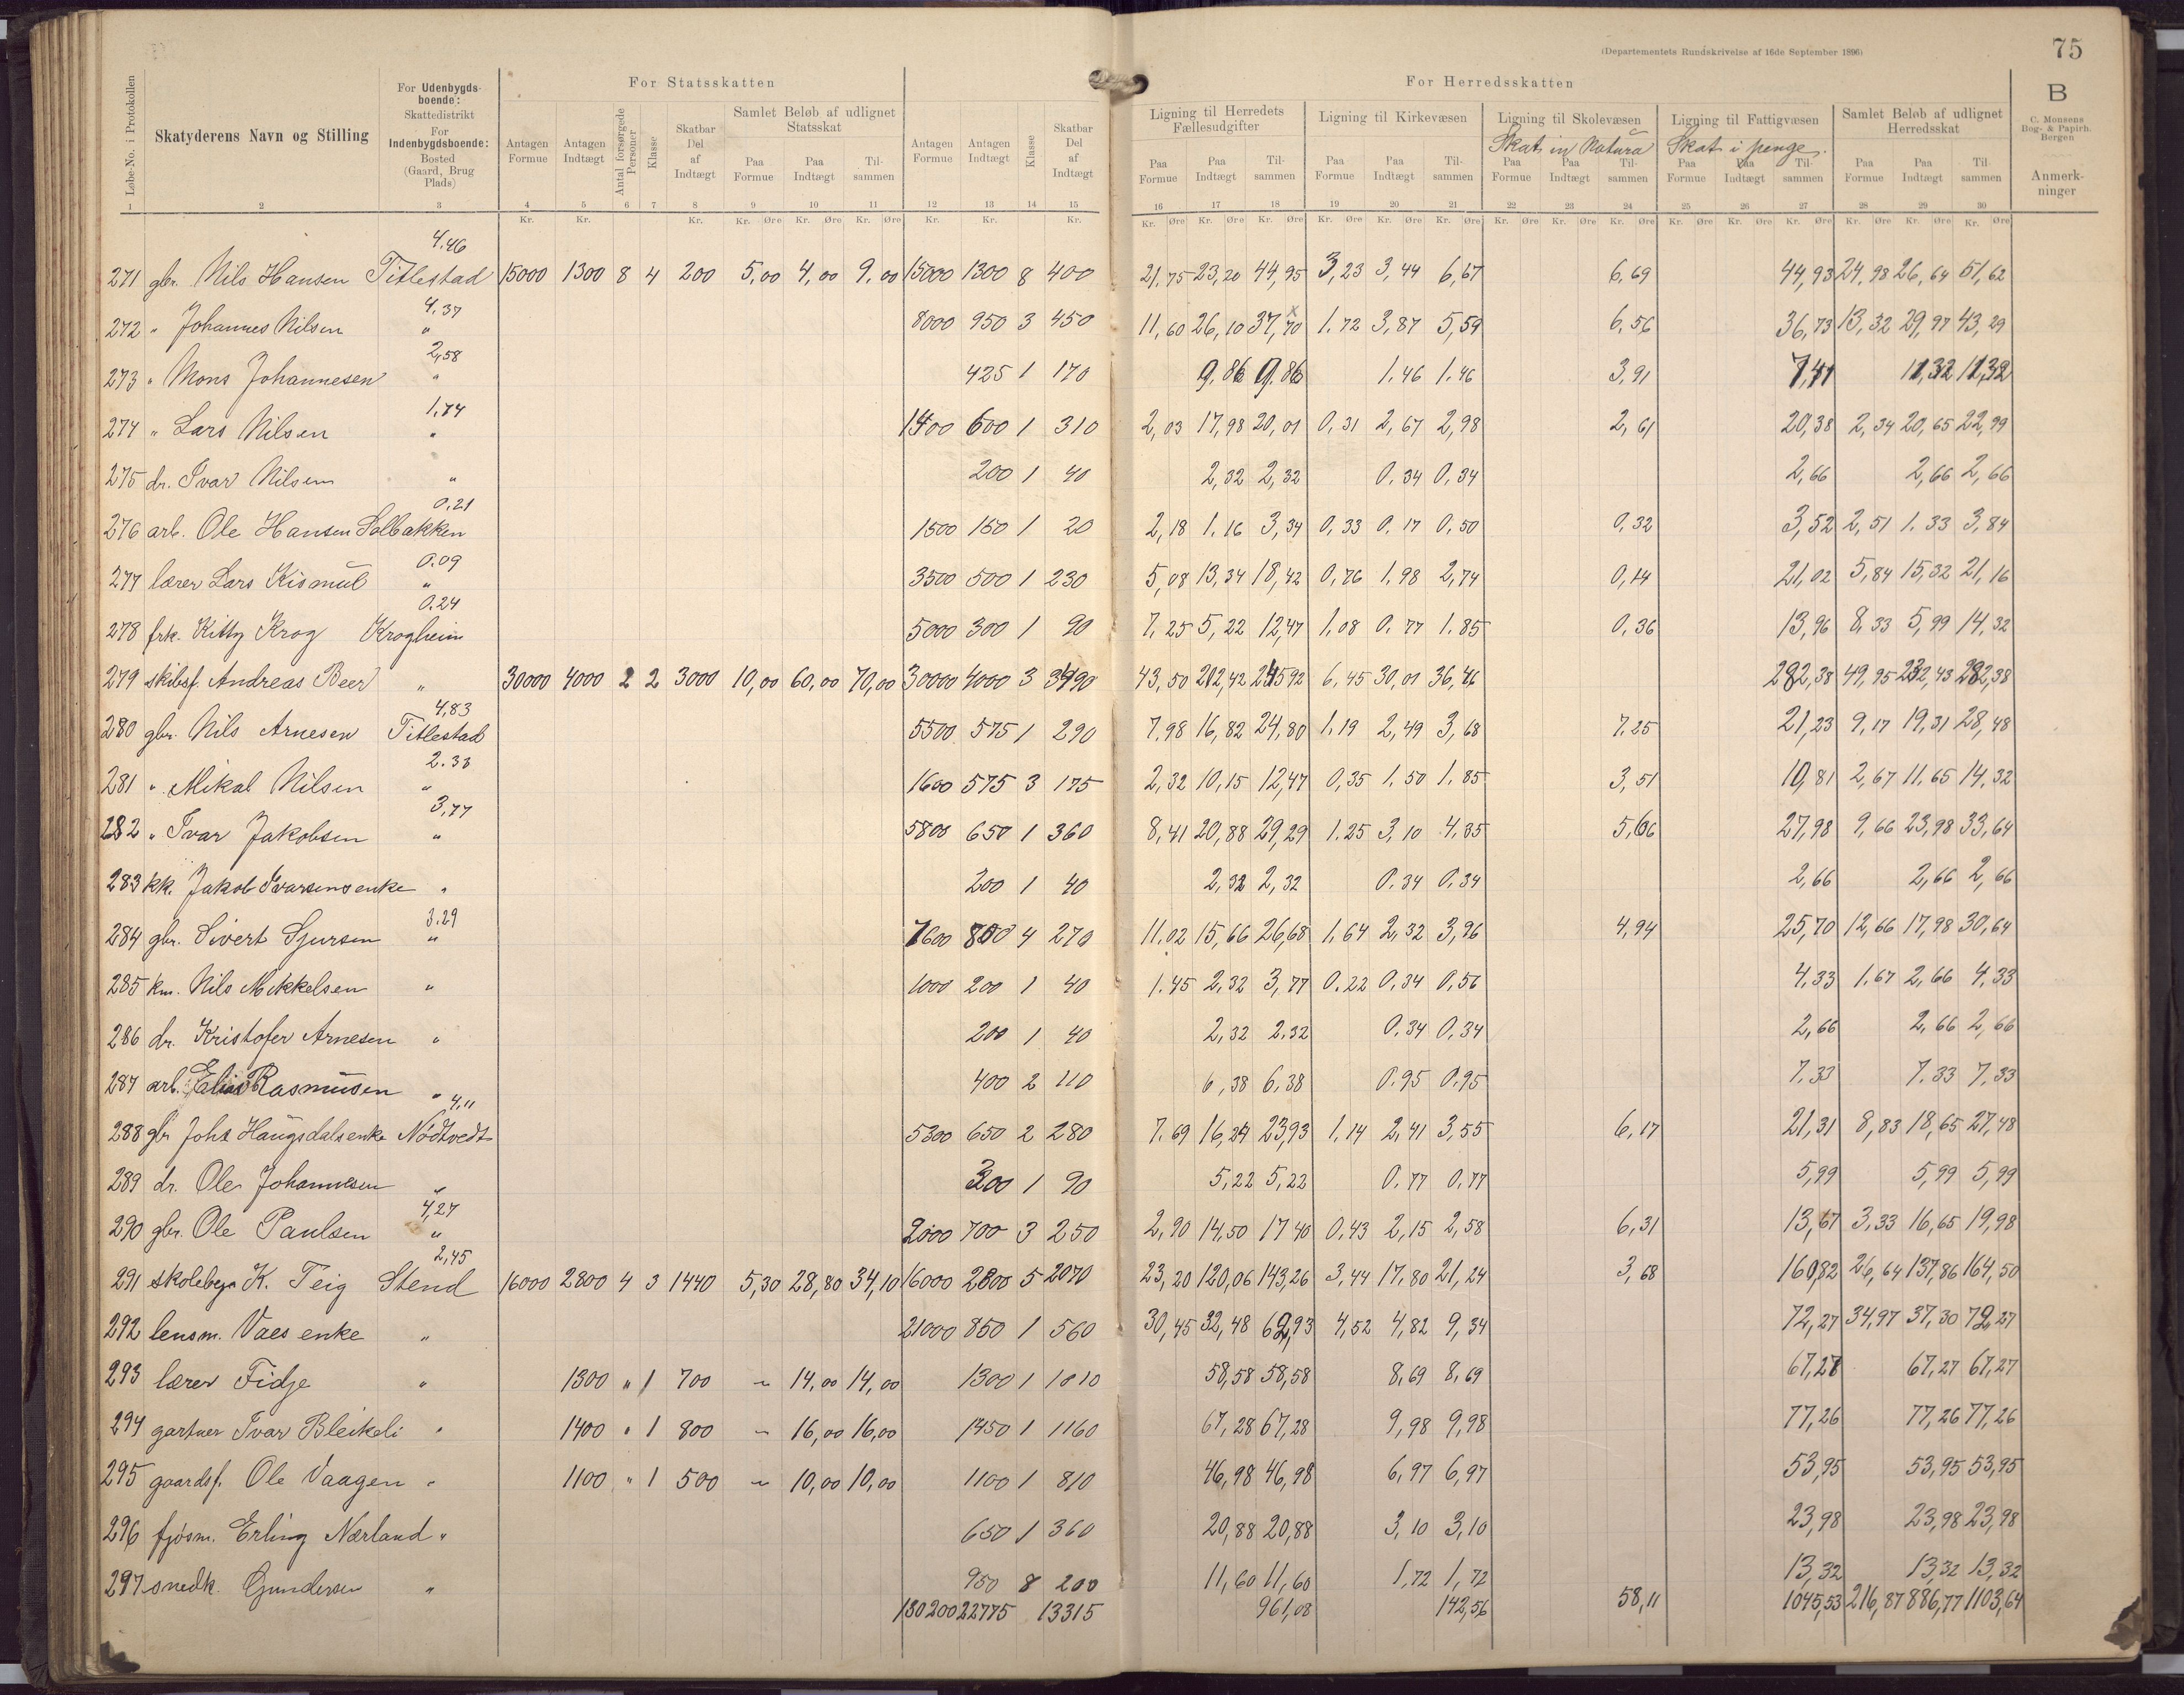 (Departementets Rundskrivelse af 16de September 1896)
75
For Statsskatten
For Herredsskatten
B
C. Monsens Bog- & Papirh. Bergen
Anmerkninger
Løbe-No. i Protokollen
Skatyderens Navn og Stilling
For Udenbygdsboende: Skattedistrikt For Indenbygdsboende: Bosted (Gaard, Brug Plads)
Antagen Formue Antagen Indtægt Antal forsørgede Personer Klasse Skatbar Del af Indtægt
Samlet Beløb af udlignet Statsskat
Paa Formue Paa Indtægt Tilsammen
Antagen Formue Antagen Indtægt Klasse Skatbar Del af Indtægt
Ligning til Herredets Fællesudgifter
Paa Formue Paa Indtægt Tilsammen
Ligning til Kirkevæsen
Paa Formue Paa Indtægt Tilsammen
Ligning til Skolevæsen
Skat in Natura
Paa Formue Paa Indtægt Tilsammen
Ligning til Fattigvæsen
Skat i penge.
Paa Formue Paa Indtægt Tilsammen
Samlet Beløb af udlignet Herredsskat
Paa Formue Paa Indtægt Tilsammen
1 2 3 4 5 6 7 8 9 10 11 12 13 14 15 16 17 18 19 20 21 22 23 24 25 26 27 28 29 30
Kr. Kr. Kr. Kr. Øre Kr. Øre Kr. Øre Kr. Kr. Kr. Kr. Øre Kr. Øre Kr. Øre Kr. Øre Kr. Øre Kr. Øre Kr. Øre Kr. Øre Kr. Øre Kr. Øre Kr. Øre Kr. Øre Kr. Øre Kr. Øre Kr. Øre
4.46
271 gbr. Nils Hansen Titlestad 15000 1300 8 4 200 5,00 4,00 9,00 15000 1300 8 400 21,75 23,20 44,95 3,23 3,44 6,67 6,69 44,93 24,98 26,64 51,62
4.37
272 " Johannes Nilsen " 8000 950 3 450 11,60 26,10 37,70 1.72 3,87 5,59 6,56 36,73 13,32 29,97 43,29
2,58
273 " Mons Johannesen " 425 1 170 9,86 9,86 1.46 1.46 3,91 7,41 11,32 11,32
1,74
274 " Lars Nilsen " 1400 600 1 310 2,03 17,98 20,01 0,31 2,67 2,98 2,61 20,38 2,34 20,65 22,99
275 dr. Ivar Nilsen " 200 1 40 2,32 2,32 0.34 0,34 2,66 2,66 2,66
0.21
276 arb. Ole Hansen Solbakken 1500 150 1 20 2,18 1.16 3,34 0,33 0,17 0,50 0,32 3,52 2,51 1.33 3,84
0.09
277 lærer Lars Kismul " 3500 500 1 230 5,08 13,34 18,42 0,76 1,98 2,74 0,14 21,02 5,84 15,32 21,16
0.24
278 frk. Kitty Krog Krogheim 5000 300 1 90 7,25 5,22 12,47 1,08 0.77 1.85 0,36 13,96 8,33 5,99 14,32
279 skibsf. Andreas Beer " 30000 4000 2 2 3000 10,00 60,00 70,00 30000 4000 3 3490 43,50 202,42 245,92 6,45 30,01 36,46 282,38 49,95 232,43 282,38
4,83
280 gbr. Nils Arnesen Titlestad 5500 575 1 290 7,98 16,82 24,80 1,19 2,49 3,68 7.25 21,23 9,17 19,31 28,48
2.33
281 " Mikal Nilsen " 1600 575 3 175 2,32 10,15 12,47 0,35 1,50 1.85 3,51 10,81 2,67 11,65 14,32
3,77
282 " Ivar Jakobsen " 5800 650 1 360 8,41 20,88 29,29 1.25 3,10 4,35 5,66 27,98 9,66 23,98 33,64
283 kk. Jakob Ivarsens enke " 200 1 40 2,32 2,32 0.34 0,34 2,66 2,66 2,66
3.29
284 gbr. Sivert Sjursen " 7600 800 4 270 11.02 15,66 26,68 1,64 2,32 3,96 4,94 25,70 12,66 17,98 30,64
285 km. Nils Mikkelsen " 1000 200 1 40 1.45 2,32 3,77 0.22 0,34 0,56 4.33 1.67 2,66 4,33
286 dr. Kristofer Arnesen " 200 1 40 2,32 2.32 0.34 0,34 2,66 2,66 2,66
287 arb. Elias Rasmusen " 400 2 110 6,38 6,38 0.95 0,95 7.33 7.33 7,33
4,11
288 gbr Johs Haugsdals enke Nödtvedt 5300 650 2 280 7.69 16,24 23,93 1,14 2,41 3,55 6,17 21,31 8,83 18,65 27,48
289 dr. Ole Johannesen " 300 1 90 5,22 5,22 0.77 0.77 5,99 5,99 5,99
4,27
290 gbr. Ole Paulsen " 2000 700 3 250 2,90 14,50 17 40 0,43 2,15 2,58 6,31 13,67 3,33 16,65 19,98
2,45
291 skolebest. K. Teig Stend 16000 2800 4 3 1440 5,30 28,80 34,10 16000 2800 5 2070 23,20 120,06 143,26 3,44 17,80 21,24 3,68 160,82 26,64 137,86 164,50
292 lensm. Vaes enke " 21000 850 1 560 30,45 32,48 62,93 4,52 4,82 9,34 72,27 34,97 37,30 72,27
293 lærer Fidje " 1300 " 1 700 " 14,00 14,00 1300 1 1010 58,58 58,58 8,69 8,69 67,27 67,27 67,27
294 gartner Ivar Bleikeli " 1400 " 1 800 " 16,00 16,00 1450 1 1160 67,28 67,28 9,98 9,98 77,26 77,26 77,26
295 gaardsf. Ole Vaagen " 1100 " 1 500 " 10,00 10,00 1100 1 810 46,98 46,98 6,97 6,97 53,95 53,95 53,95
296 fjösm. Erling Nærland " 650 1 360 20,88 20,88 3,10 3,10 23,98 23,98 23,98
297 snedk. Gundersen " 950 8 200 11,60 11,60 1,72 1,72 13,32 13,32 13,32
130200 22775 13315 961,08 142,56 58,11 1045,53 216,87 886,77 1103,64